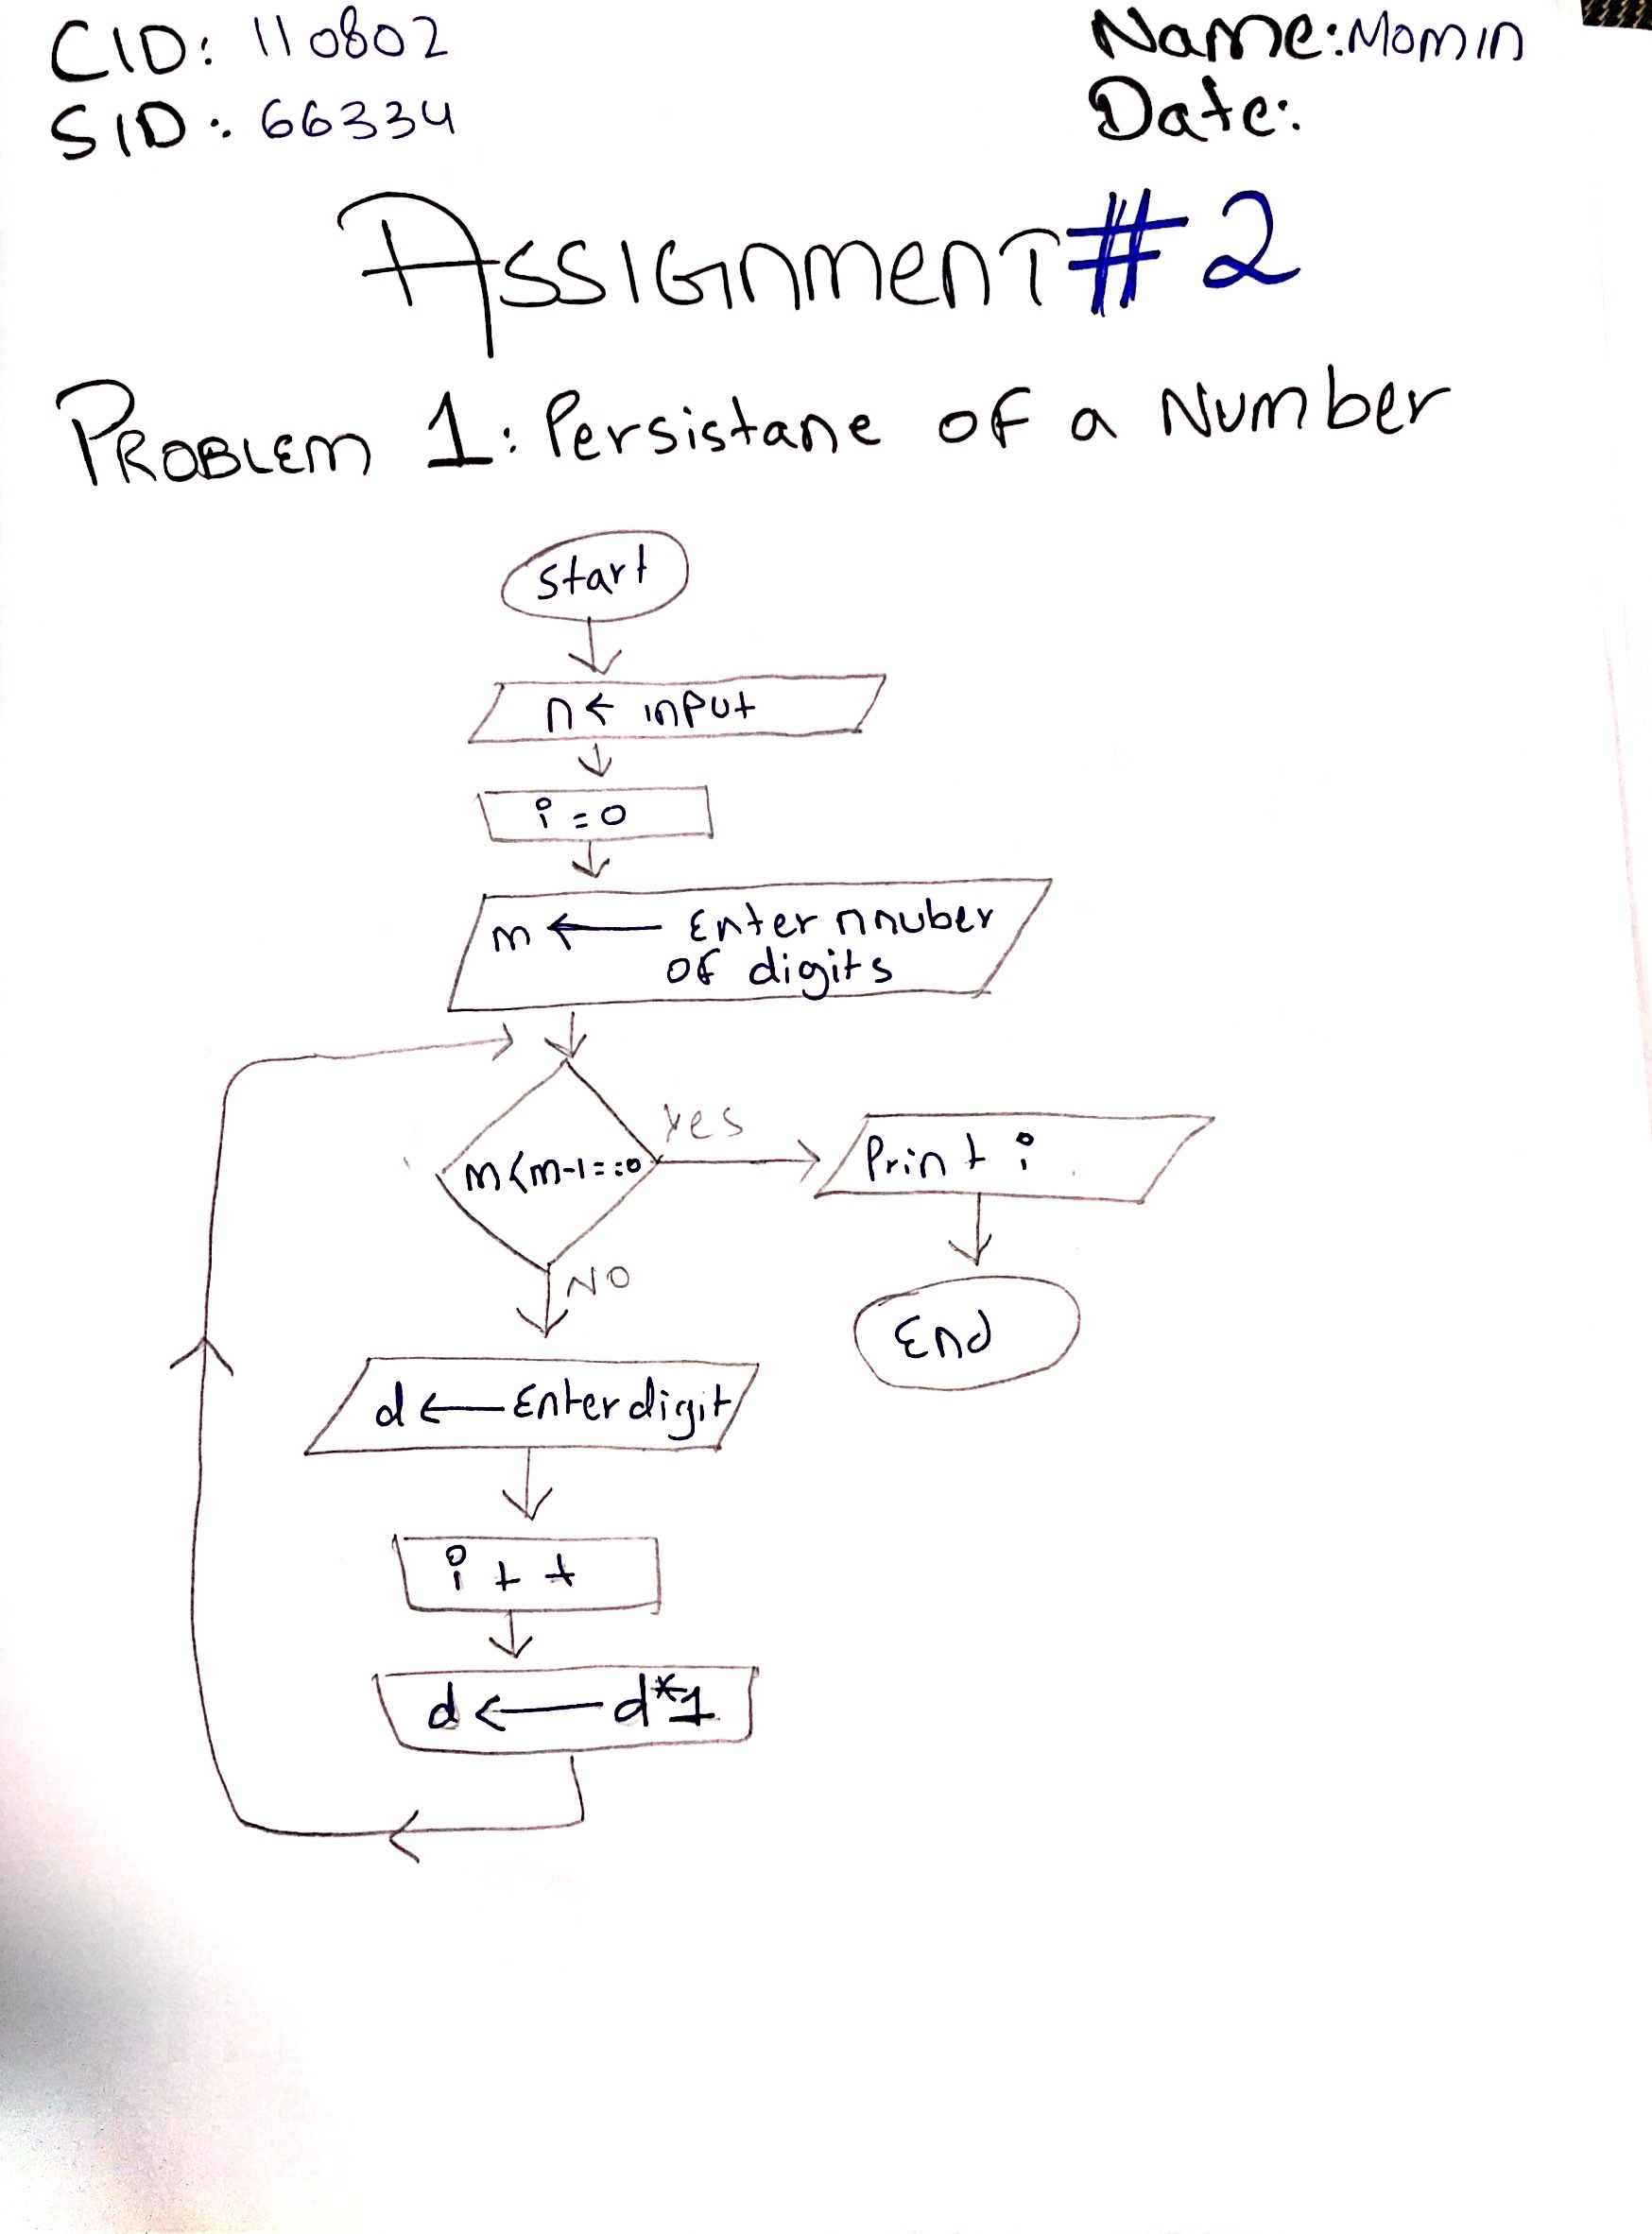 CID: 110802
Name: Momin
SID: 66334
Date:
Assignment # 2
Problem 1: Persistane of a Number
Start
n ← input
i = 0
m ← Enter nnuber
of digits
m<m-1==0
Yes
Print i
No
End
d ← Enter digit
i + +
d ← d*1